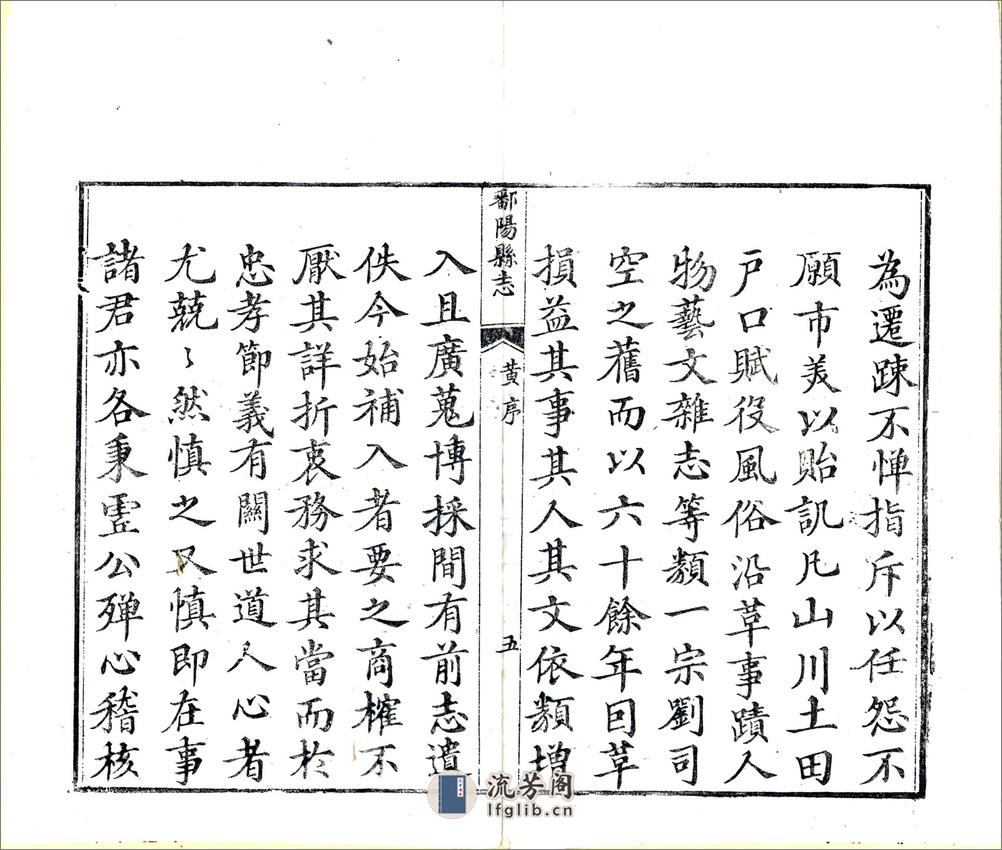 為遷踈不憚指斥以任怨不
願市美以貽訊凡山川土田
戶口賦役風俗沿草事蹟人
物藝文雜志等類一宗劉司
空之舊而以六十餘年因草
損益其事其人其文依類增
鄱陽縣志
黄序
五
入且廣蒐博採間有前志遺
佚今始補入者要之商榷不
厭其詳折衷務求其當而於
忠孝節義有關世道人心者
尤兢〻然慎之又慎即在事
諸君亦各秉虛公殫心稽核
流芳阁
lfglib.cn